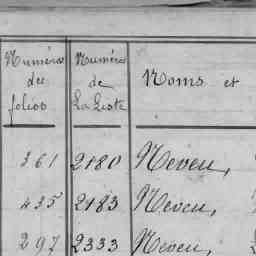 Numéros des folios
Numéros de La Liste
Noms et
361 2180 Neveu,
435 2183 Neveu,
297 2333 Neveu,